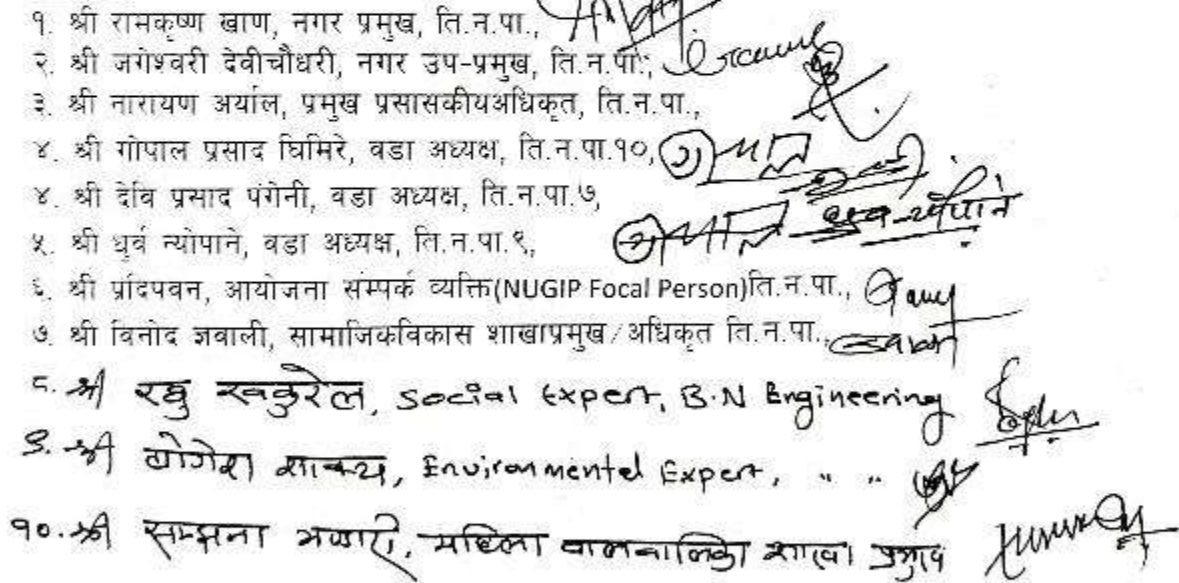 १. श्री रामकृष्ण खाण, नगर प्रमुख, ति.न.पा.,
२. श्री जगेश्वरी देवीचौधरी, नगर उप-प्रमुख, ति.न.पा.,
३. श्री नारायण अर्याल, प्रमुख प्रसासकीयअधिकृत, ति.न.पा.,
४. श्री गोपाल प्रसाद घिमिरे, वडा अध्यक्ष, ति.न.पा.१०,
४. श्री देवि प्रसाद पंगेनी, वडा अध्यक्ष, ति.न.पा.७,
५. श्री धुर्व न्योपाने, वडा अध्यक्ष, ति.न.पा.९,
६. श्री प्रदिपवन, आयोजना संम्पर्क व्यक्ति(NUGIP Focal Person)ति.न.पा.,
७. श्री विनोद ज्ञवाली, सामाजिकविकास शाखाप्रमुख/अधिकृत ति.न.पा.,
८. श्री रघु सकुरेल, Social Expert, B.N Engineering
९. श्री योगेश शाक्य, Environmental Expert, " "
१०. श्री सम्झना भण्डारी, महिला बालबालिका शाखा प्रमुख